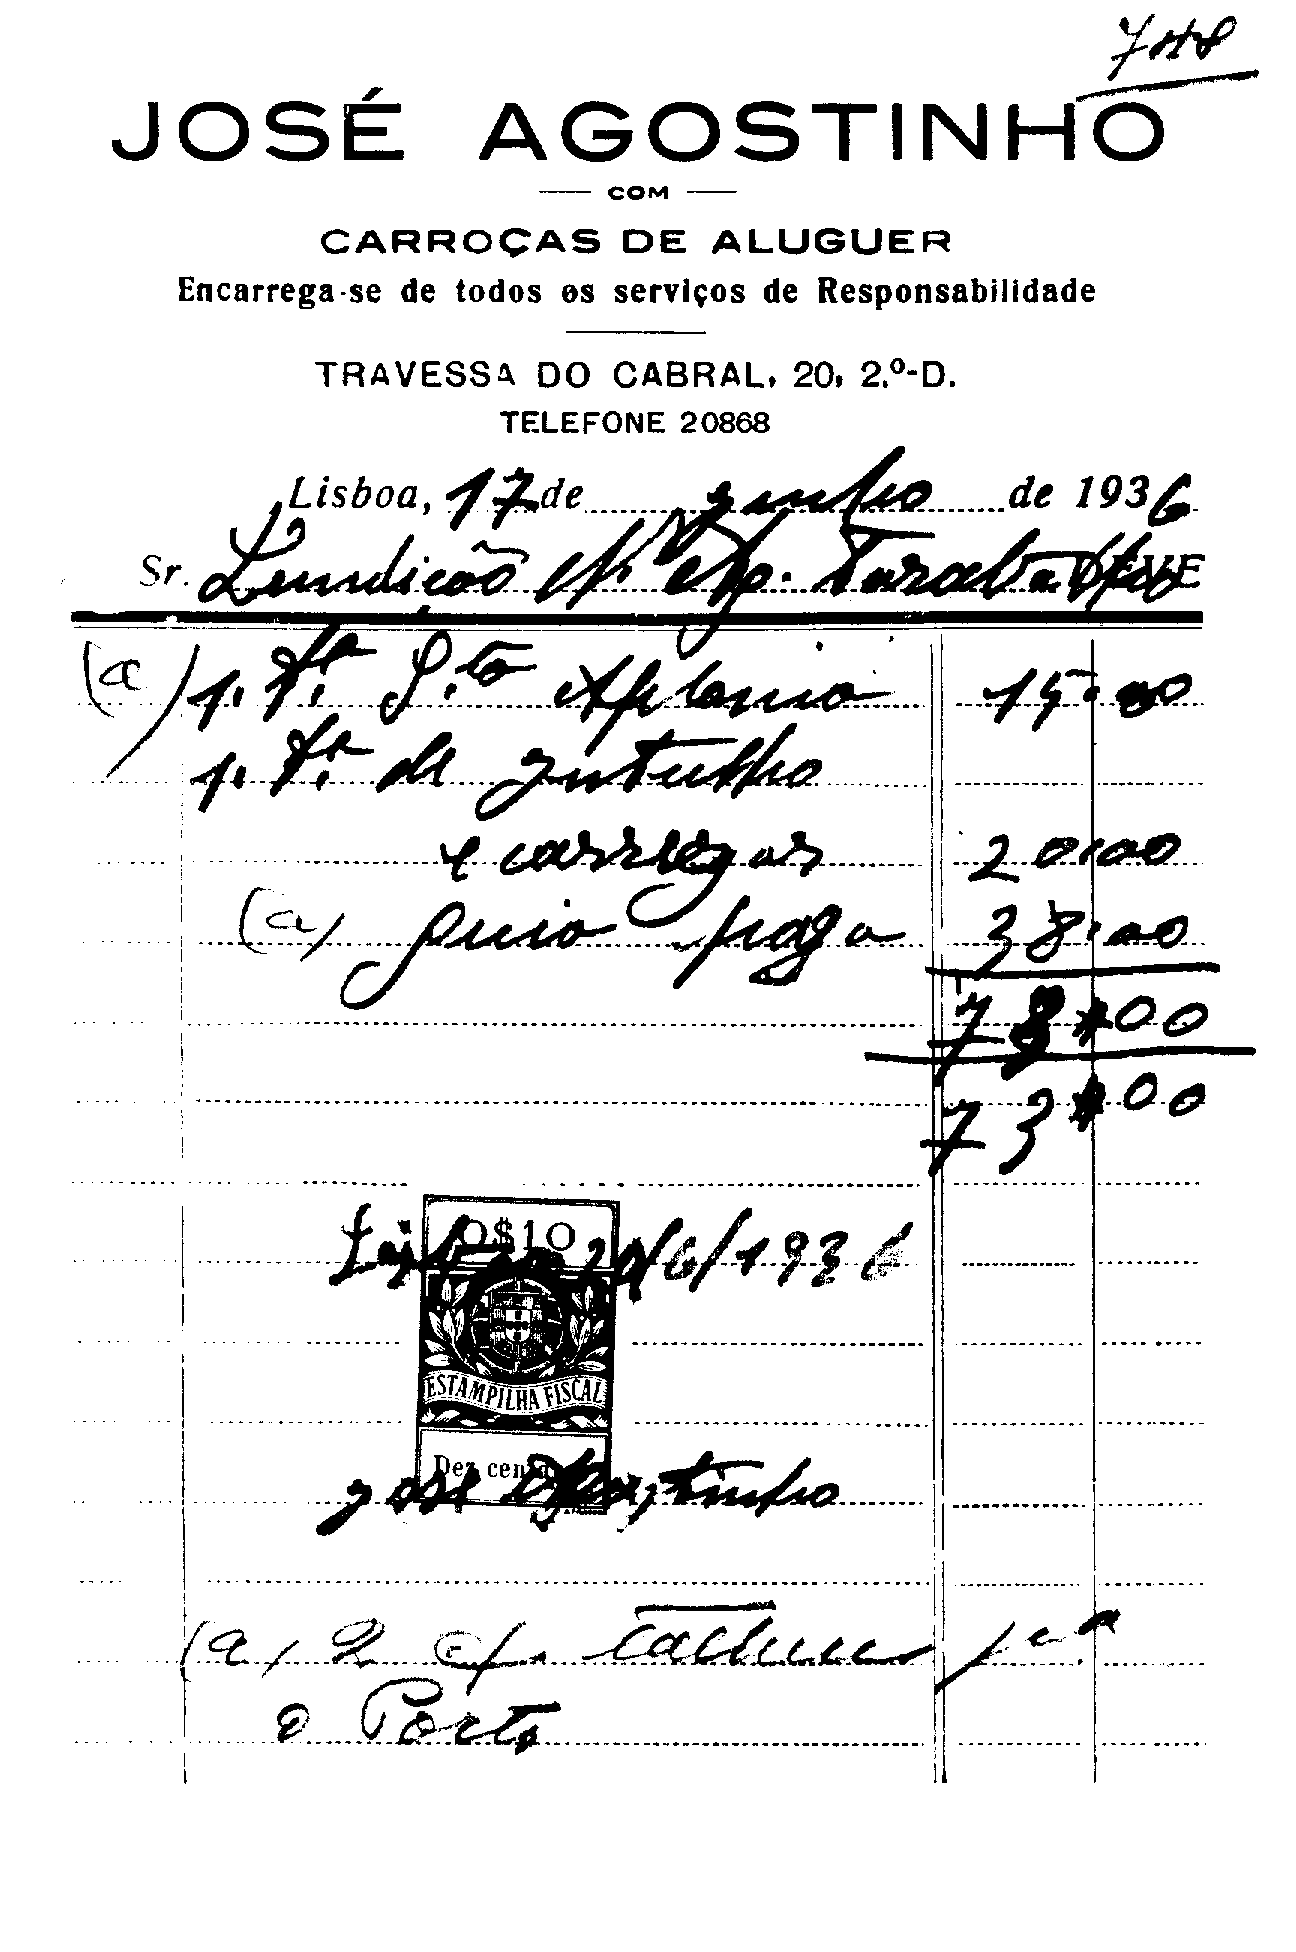 748
JOSÉ AGOSTINHO
COM
CARROÇAS DE ALUGUER
Encarrega-se de todos os serviços de Responsabilidade
TRAVESSA DO CABRAL, 20, 2.º-D.
TELEFONE 20868
Lisboa, 17 de junho de 1936
Sr. DEVE
(a) 1. fr. S.ta Aplonia 15.00
1. fr. de Intulho
e carregar 20.00
(a) guia paga 38.00
78$00
73$00
0$10
20/6/1936
ESTAMPILHA FISCAL
Dez cent
Jose Agostinho
(a) 2 c/.
o Porto